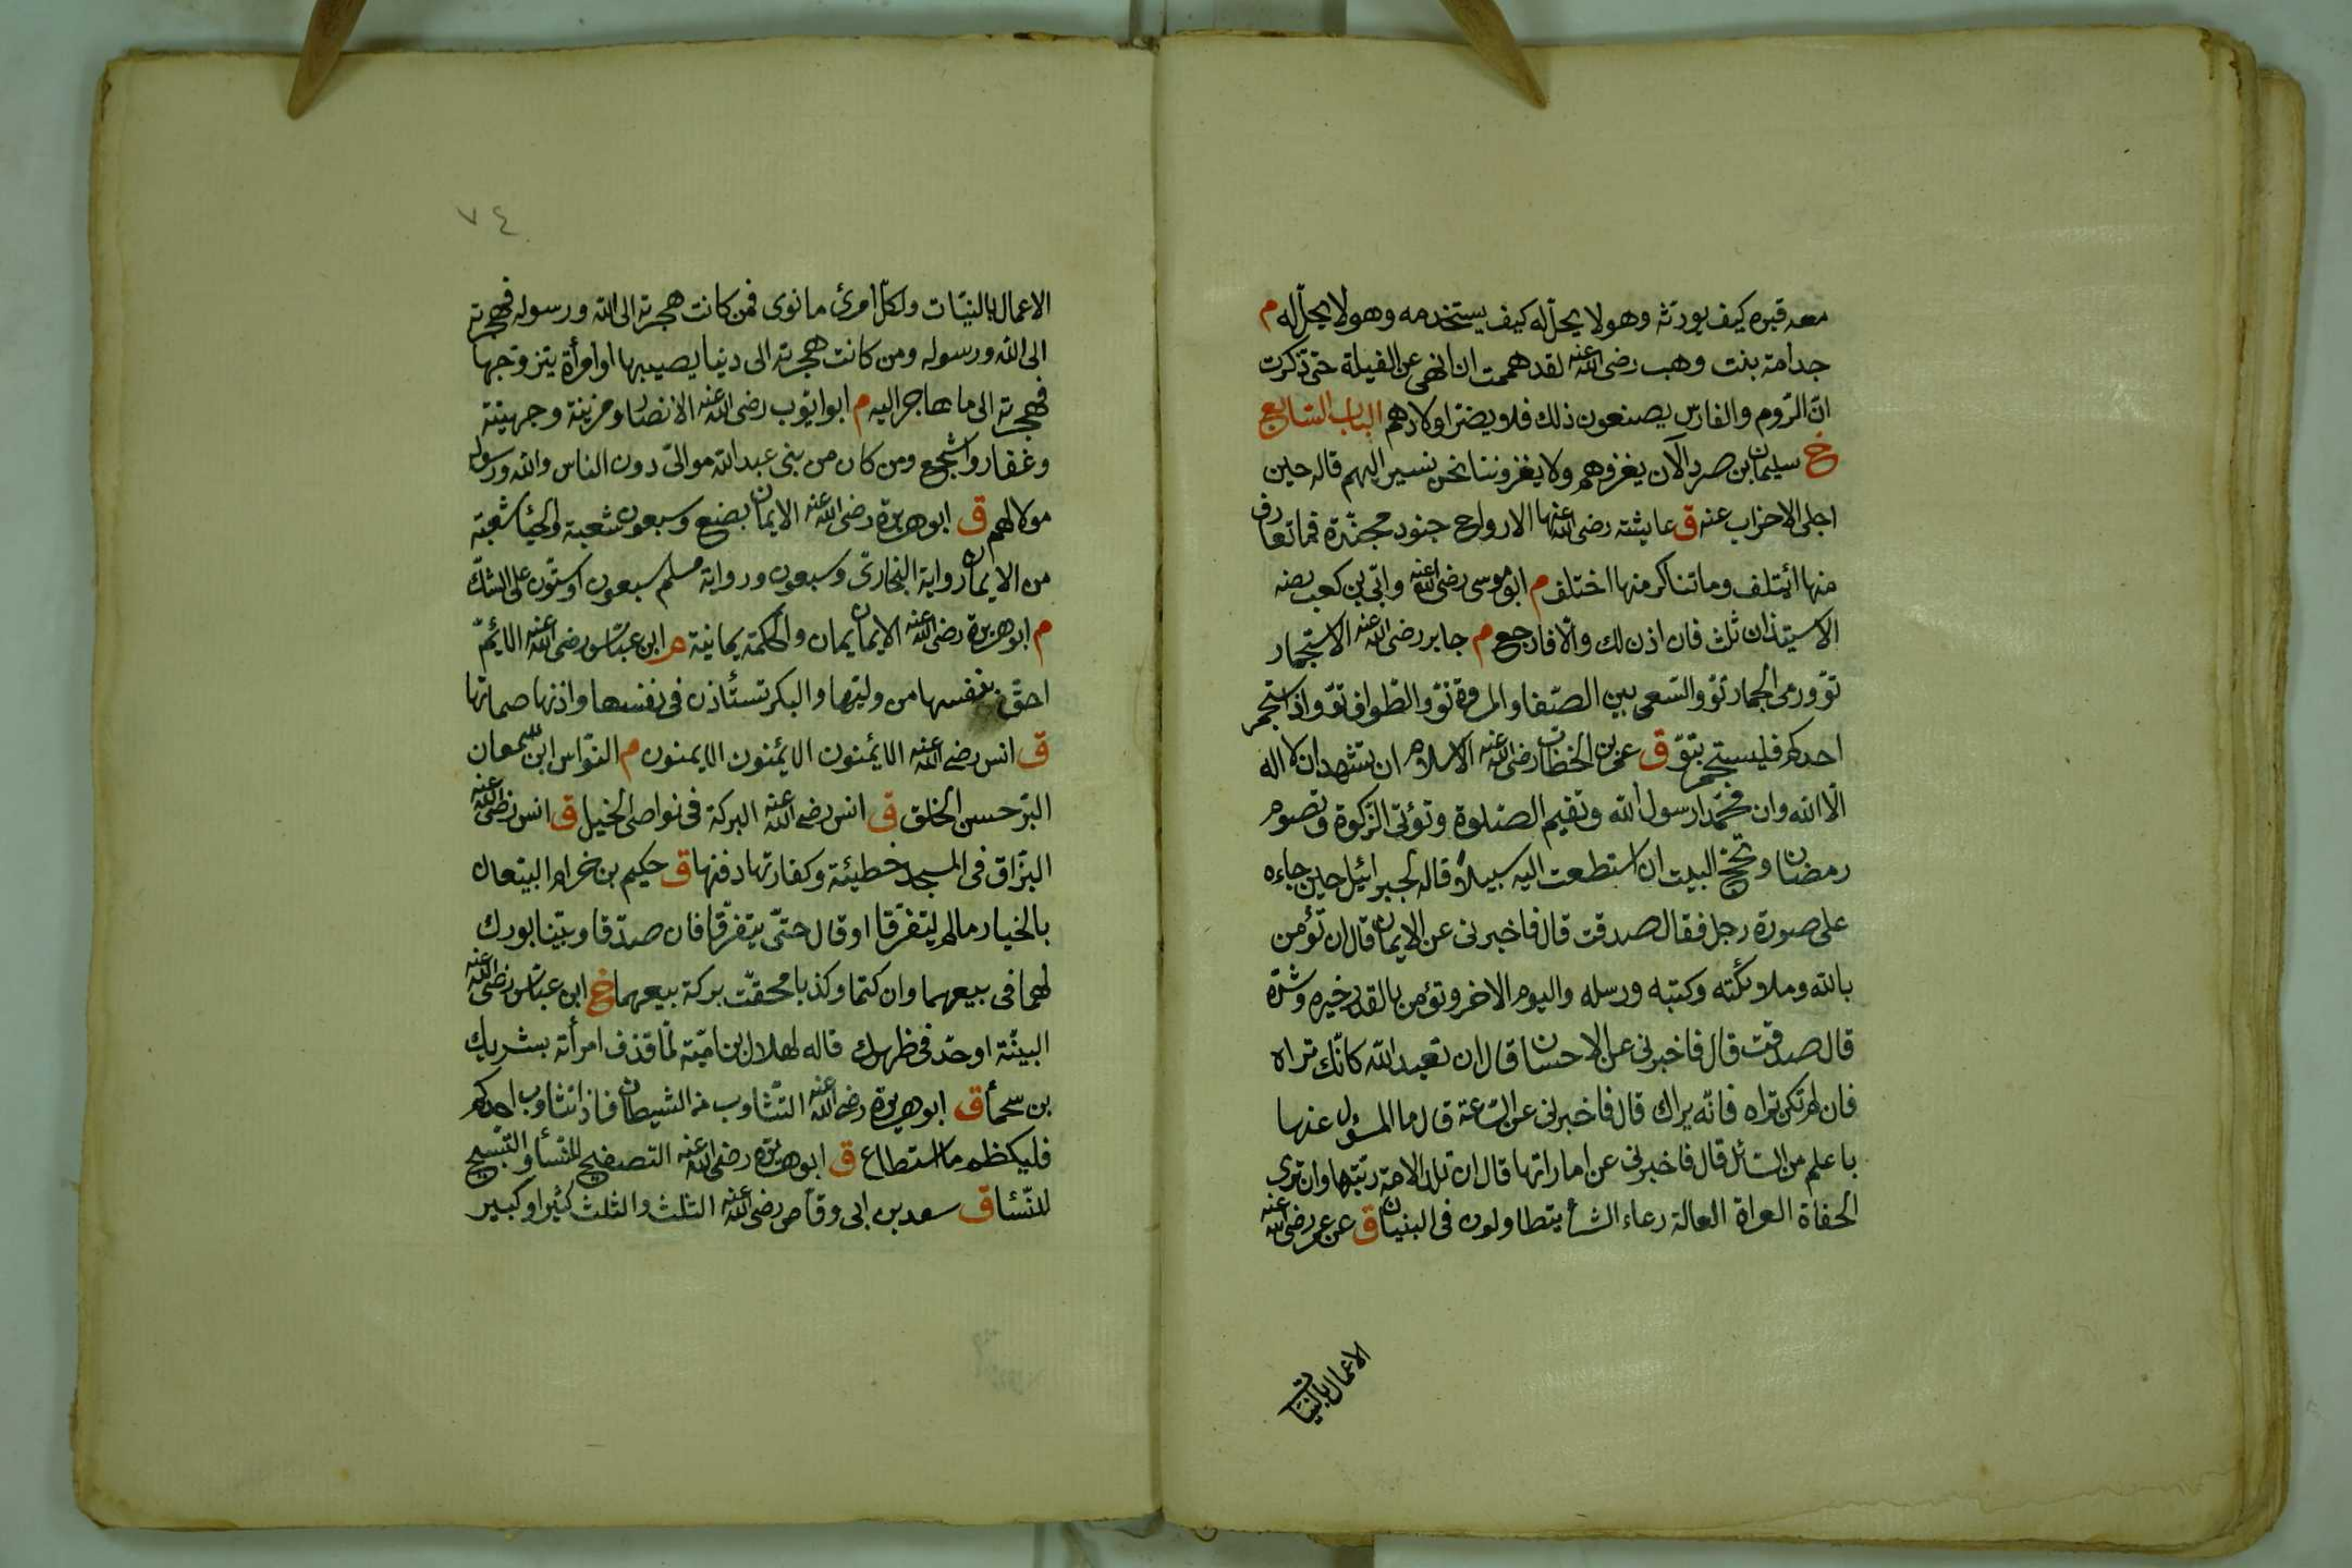 معه قبره كيف يورثه وهو لا يحلّ له كيف يستخدمه وهو لا يحلّ له م
جدامة بنت وهب رضى الله عنه لقد هممت ان انهى عن الغيلة حتى ذكرت
انّ الرّوم والفارس يصنعون ذلك فلا يضرّ اولادهم الباب السّابع
خ سليمان بن صرد الآن يغزوهم ولا يغزوننا نحن نسير اليهم قاله حين
اجلى الاحزاب عنه ق عايشة رضى الله عنها الارواح جنود مجنّدة فما تعارف
منها ائتلف وما تناكر منها اختلف م ابو موسى رضى الله عنه وابّى بن كعب رضه
الاستيذان ثلث فان اذن لك والّا فارجع م جابر رضى الله عنه الاستجمار
توّ ورمى الجمار توّ والسّعى بين الصّفا والمروة توّ والطّواف توّ واذ استجمر
احدكم فليستجمر بتوّ ق عمر بن الخطّاب رضى الله عنه الاسلام ان تشهد ان لا اله
الّا الله وان محمّدا رسول الله وتقيم الصّلوة وتؤتى الزّكوة وتصوم
رمضان وتحجّ البيت ان استطعت اليه سبيلا قاله لجبرائيل حين جاءه
على صورة رجل فقال صدقت قال فاخبرنى عن الايمان قال ان تؤمن
بالله وملائكته وكتبه ورسله واليوم الاخر وتؤمن بالقدر خيره وشرّه
قال صدقت قال فاخبرنى عن الاحسان قال ان تعبد الله كانّك تراه
فان لم تكن تراه فانّه يراك قال فاخبرنى عن السّاعة قال ما المسؤل عنها
باعلم من السّائل قال فاخبرنى عن اماراتها قال ان تلد الامة ربّتها وان ترى
الحفاة العراة العالة رعاء الشّاء يتطاولون فى البنيان ق عن عمر رضى الله عنه
الاعمال بالنيّات
٧٤
الاعمال بالنيّات ولكلّ امرئ ما نوى فمن كانت هجرته الى الله ورسوله فهجرته
الى الله ورسوله ومن كانت هجرته الى دنيا يصيبها او امرأة يتزوّجها
فهجرته الى ما هاجر اليه م ابو ايّوب رضى الله عنه الانصار ومزينة وجهينة
وغفار واشجع ومن كان من بنى عبد الله موالىّ دون الناس والله ورسوله
مولاهم ق ابو هريرة رضى الله عنه الايمان بضع وسبعون شعبة والحياء شعبة
من الايمان رواية البخارىّ وسبعون ورواية مسلم سبعون او ستّون على الشكّ
م ابو هريرة رضى الله عنه الايمان يمان والحكمة يمانية م ابن عبّاس رضى الله عنه الايّم
احقّ بنفسها من وليّها والبكر تستأذن فى نفسها واذنها صماتها
ق انس رضى الله عنه الايمنون الايمنون الايمنون م النوّاس ابن سمعان
البرّ حسن الخلق ق انس رضى الله عنه البركة فى نواصى الخيل ق انس رضى الله عنه
البزاق فى المسجد خطيئة وكفارتها دفنها ق حكيم بن خرام البيّعان
بالخيار ما لم يتفرّقا او قال حتّى يتفرّقا فان صدّقا وبيّنا بورك
لهما فى بيعهما وان كتما وكذبا محقّت بركة بيعهما خ ابن عبّاس رضى الله عنه
البيّنة او حدّ فى ظهرك قاله لهلال ابن اميّة لمّا قذف امرأته بشريك
بن سحماء ق ابو هريرة رضى الله عنه التّثاوب من الشيطان فاذا تثاوب احدكم
فليكظم ما استطاع ق ابو هريرة رضى الله عنه التصفيح للنّساء والتّسبيح
للنّساء ق سعد بن ابى وقاص رضى الله عنه الثلث والثلث كثير او كبير